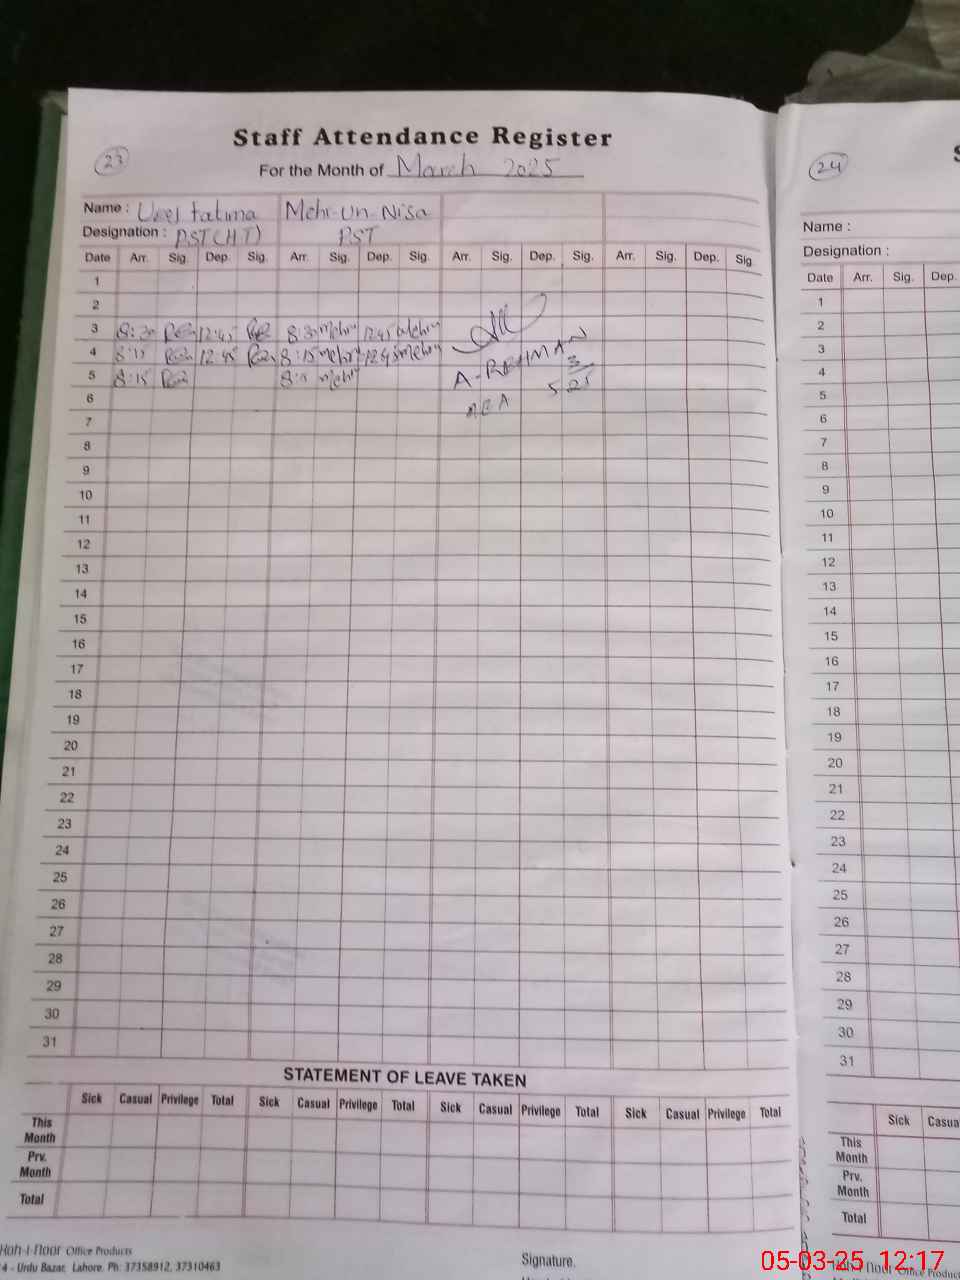 Staff Attendance Register
23
For the Month of March 2025
Name : fatima Mehr-un-Nisa
Designation : PST(HT) PST
Date Arr. Sig. Dep. Sig. Arr. Sig. Dep. Sig. Arr. Sig. Dep. Sig. Arr. Sig. Dep. Sig.
1
2
3 8:30 12:45 8:30 Mehr 12:45 Mehr
4 8:15 12:45 8:15 Mehr 12:45 Mehr
5 8:15 Mehr
A-REHMAN
5 3 25
6
7
8
9
10
11
12
13
14
15
16
17
18
19
20
21
22
23
24
25
26
27
28
29
30
31
STATEMENT OF LEAVE TAKEN
Sick Casual Privilege Total Sick Casual Privilege Total Sick Casual Privilege Total Sick Casual Privilege Total
This Month
Prv. Month
Total
Office Products
Urdu Bazar, Lahore. Ph: 37358912, 37310463
Signature.
24
Name :
Designation :
Date Arr. Sig. Dep.
1
2
3
4
5
6
7
8
9
10
11
12
13
14
15
16
17
18
19
20
21
22
23
24
25
26
27
28
29
30
31
Sick
This Month
Prv. Month
Total
Office
05-03-25 12:17